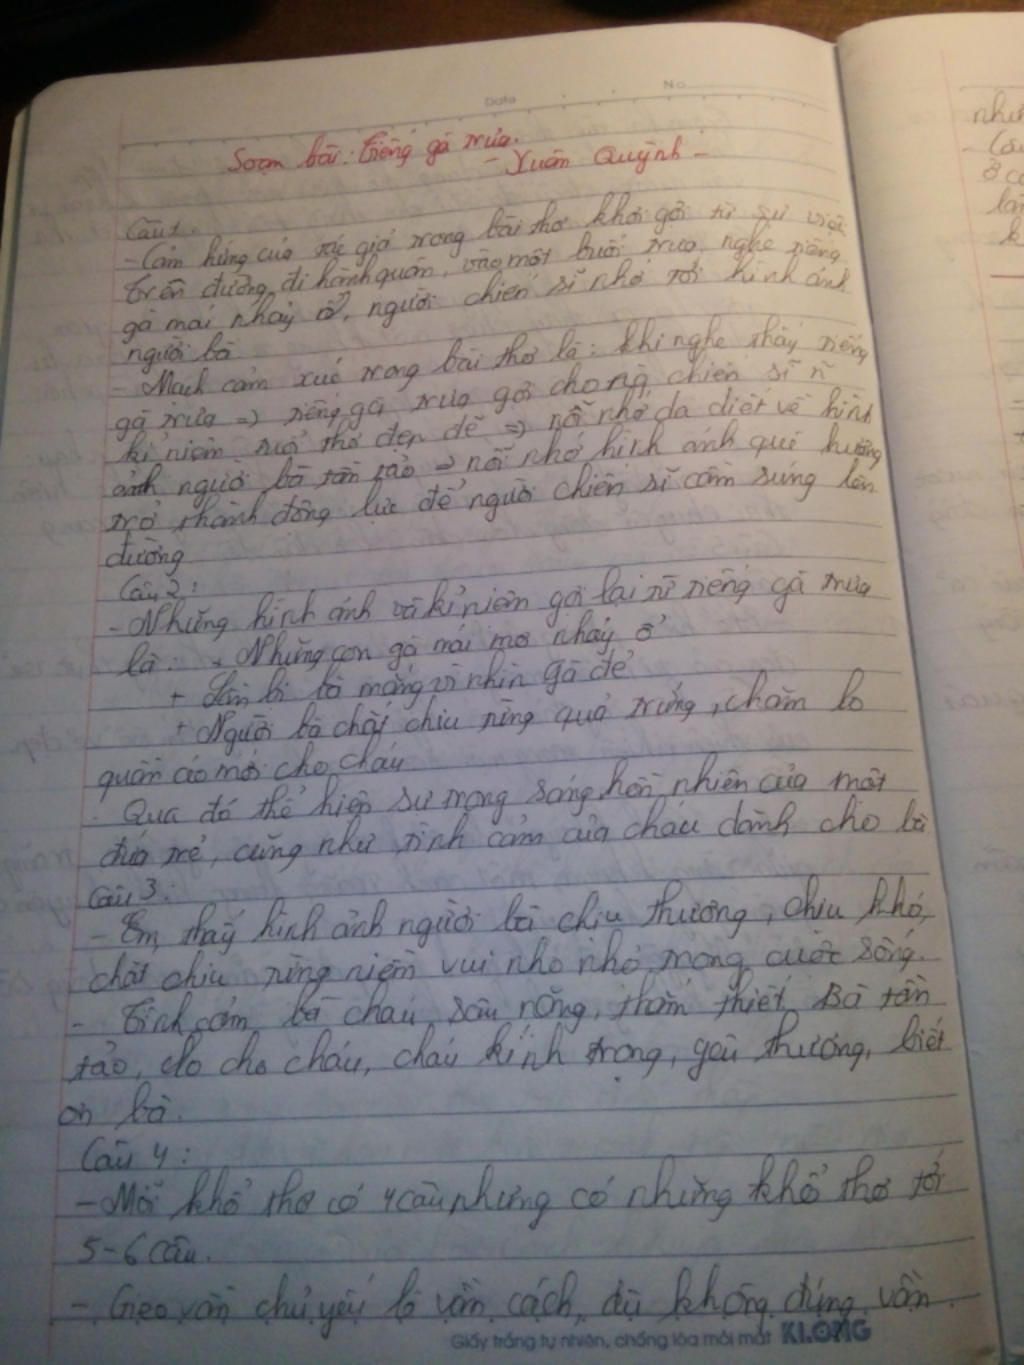 Date No
Soạn bài: Tiếng gà trưa.
- Xuân Quỳnh -
Câu 1.
- Cảm hứng của tác giả trong bài thơ khơi gợi từ sự việc
trên đường đi hành quân, vào một buổi trưa nghe tiếng
gà mái nhảy ổ, người chiến sĩ nhớ tới hình ảnh
người bà
- Mạch cảm xúc trong bài thơ là: khi nghe thấy tiếng
gà trưa => tiếng gà trưa gợi cho ng chiến sĩ n
kỉ niệm tuổi thơ đẹp đẽ => nỗi nhớ da diết về hình
ảnh người bà tần tảo => nỗi nhớ hình ảnh quê hương
trở thành động lực để người chiến sĩ cầm súng lên
đường
Câu 2:
- Những hình ảnh và kỉ niệm gợi lại từ tiếng gà trưa
là: + Những con gà mái mơ nhảy ổ
+ Lần bị bà mắng vì nhìn gà đẻ
+ Người bà chắt chiu từng quả trứng, chăm lo
quần áo mới cho cháu
Qua đó thể hiện sự trong sáng, hồn nhiên của một
đứa trẻ, cũng như tình cảm của cháu dành cho bà
Câu 3:
- Em thấy hình ảnh người bà chịu thương, chịu khó,
chắt chiu từng niềm vui nho nhỏ trong cuộc sống.
- Tình cảm bà cháu sâu nặng, thắm thiết. Bà tần
tảo, lo cho cháu, cháu kính trọng, yêu thương, biết
ơn bà.
Câu 4:
- Mỗi khổ thơ có 4 câu nhưng có những khổ thơ tới
5-6 câu.
- Gieo vần chủ yếu là vần cách, dù không đúng vần
Giấy trắng tự nhiên, chống lóa mỏi mắt KLONG
như
ở